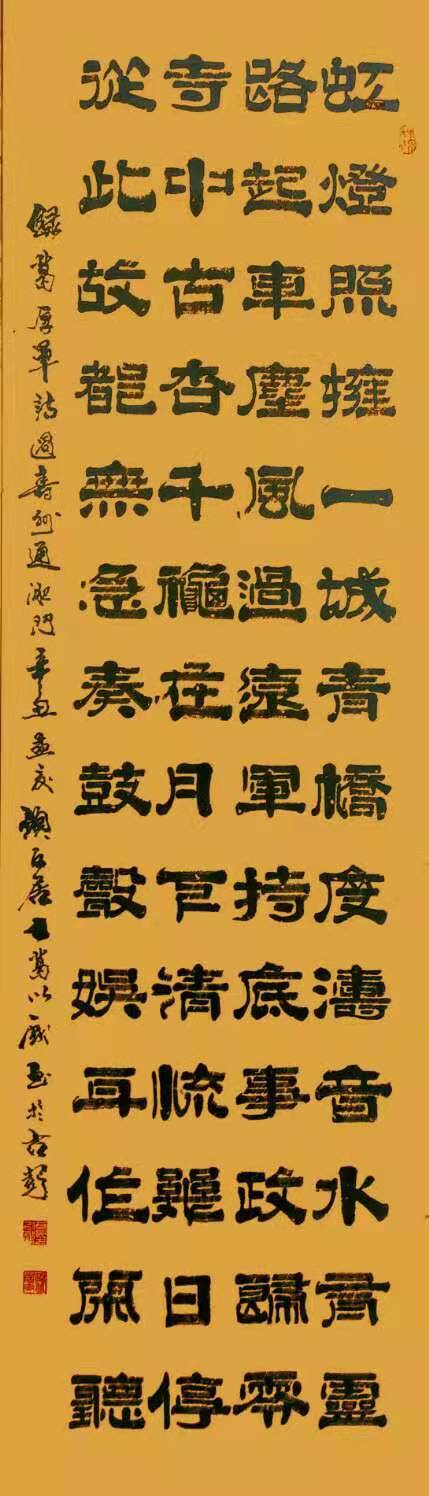 虹燈照擁一城青橋度濤音水有靈
路起車塵風過遠軍持底事政歸
寺中古杏千龝在月下清流日停
從此故都無急奏鼓聲娛耳作閑聽
錄葛厚軍詩過壽州通淝門辛丑孟夏石居士葛以於古彭